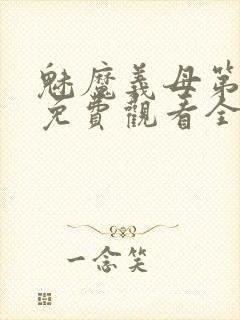 魅魔義母第
免費觀看全
一念笑